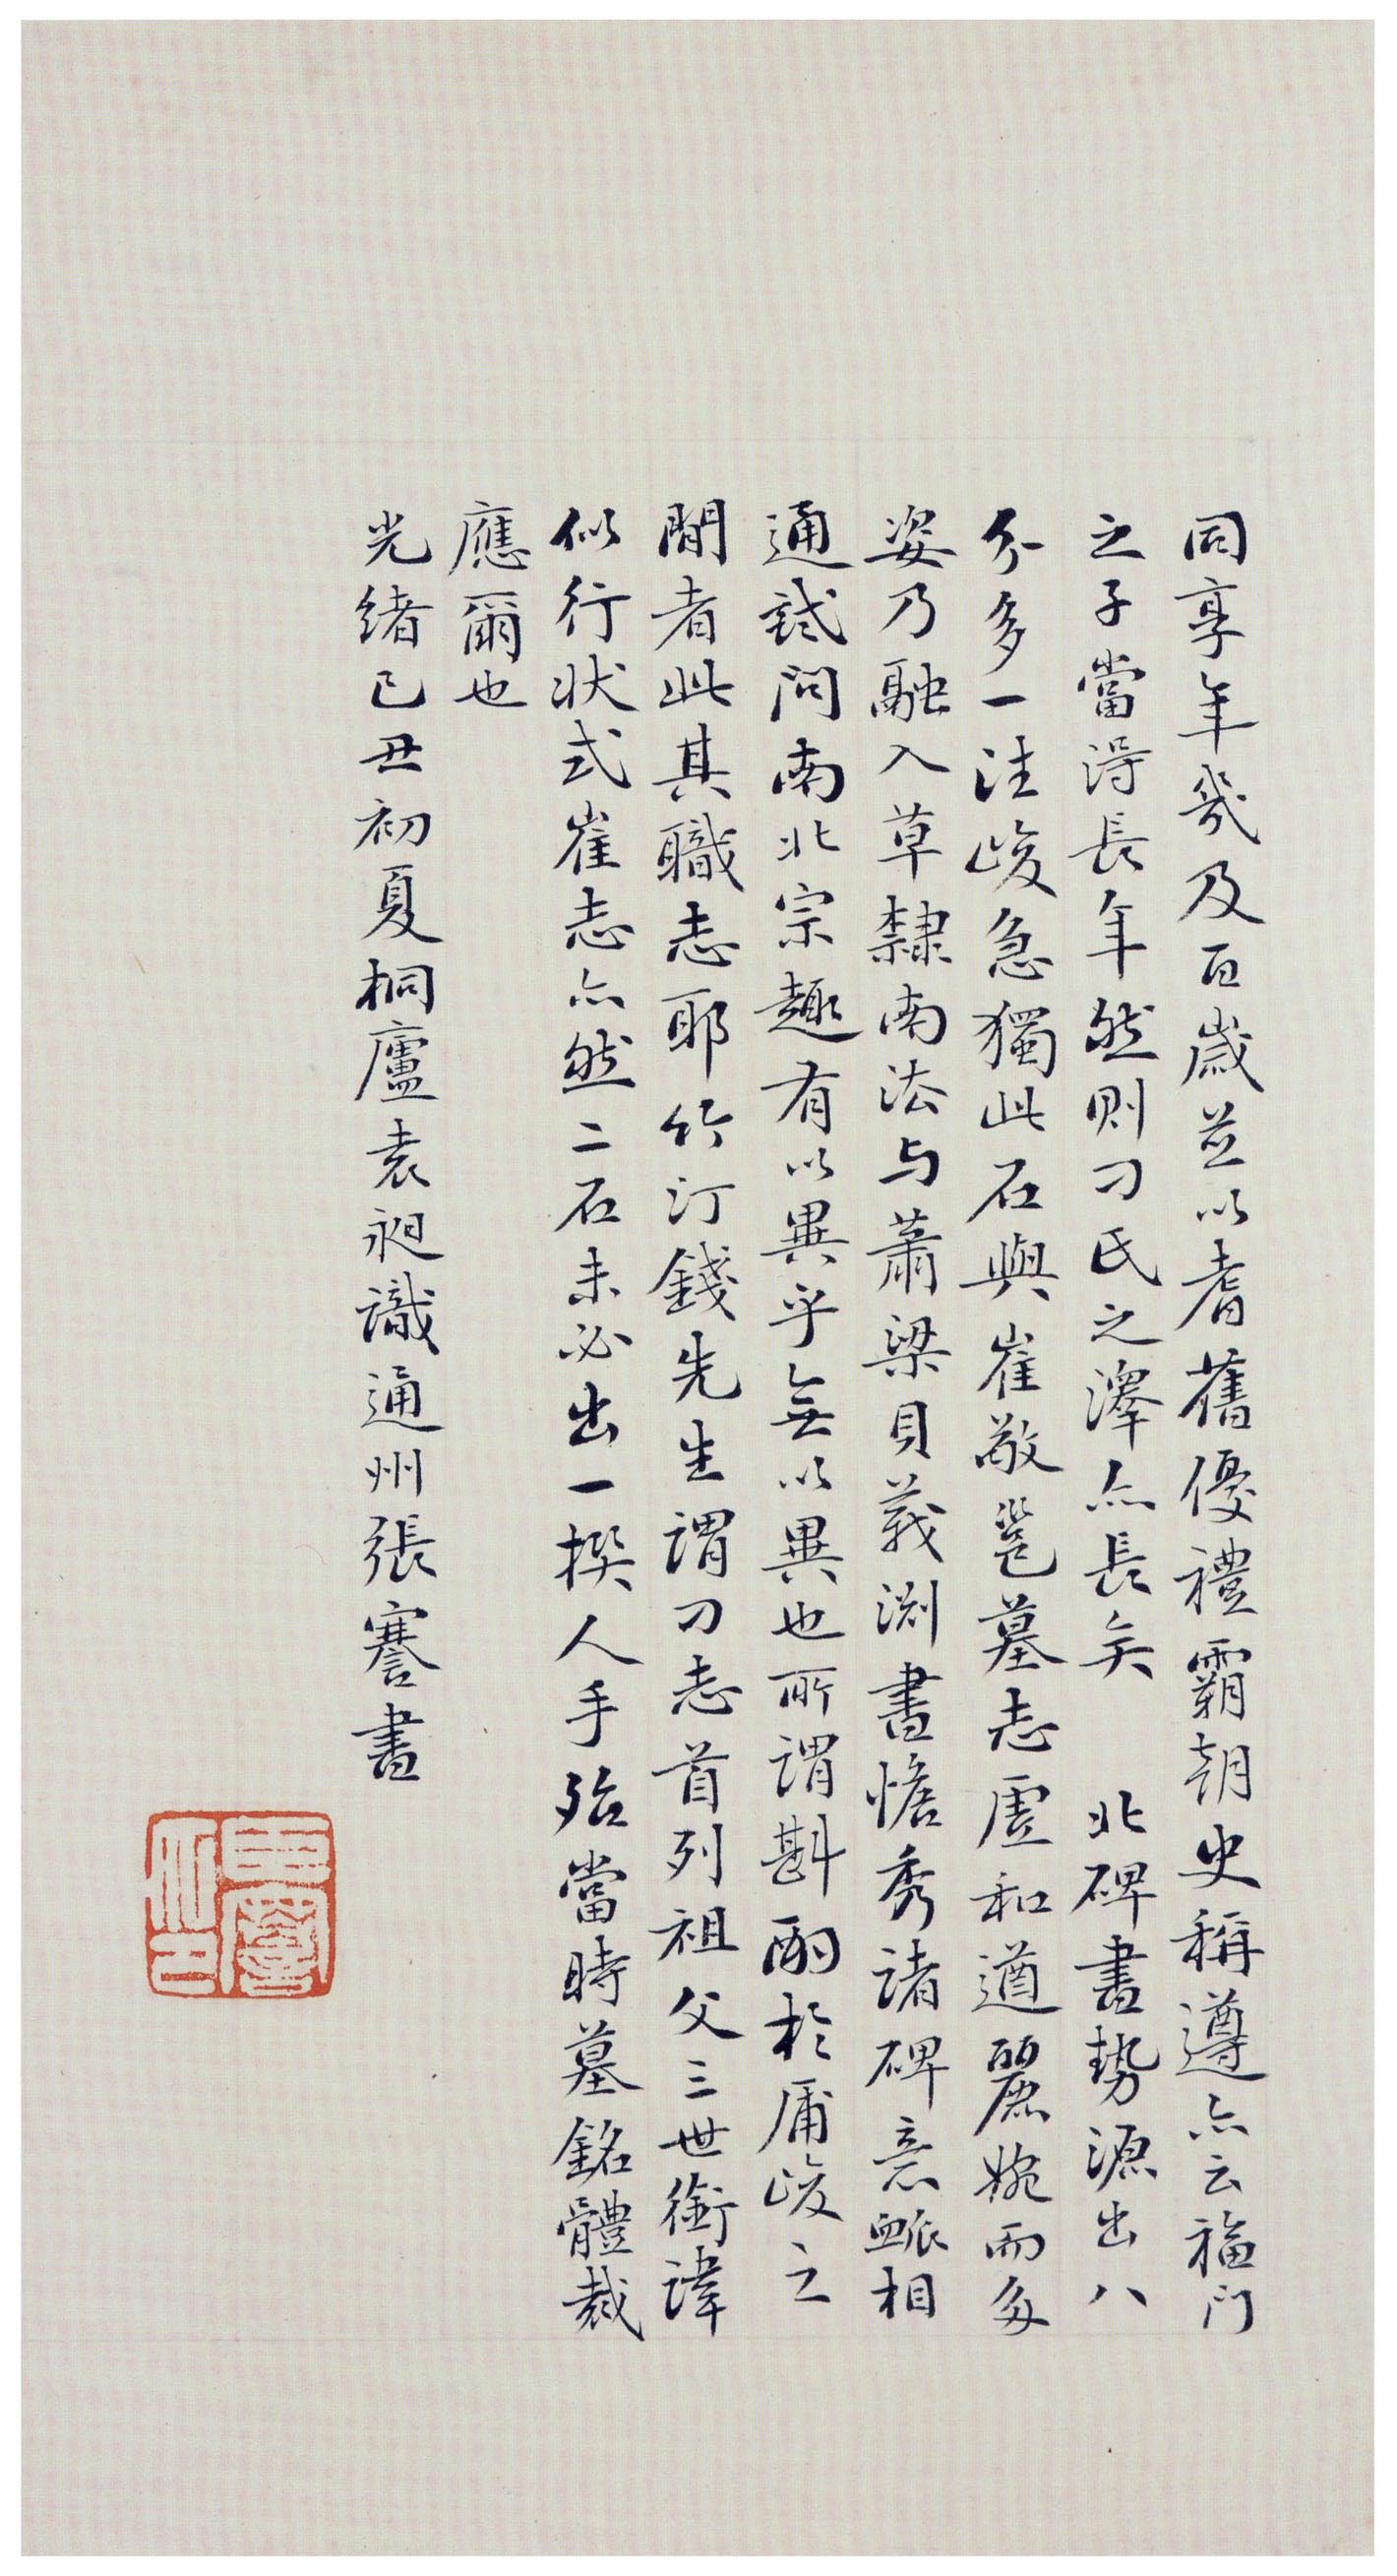 同享年幾及百歲並以耆舊優禮霸朝史稱遵亦云福門
之子當得長年然則刁氏之澤亦長矣　北碑書勢源出八
分多一注峻急獨此石與崔敬邕墓志虛和遒麗婉而多
姿乃融入草隸南法与蕭梁貝義淵書憺秀諸碑意脈相
通試問南北宗趣有以異乎無以異也所謂斟酌於庸峻之
閒者此其職志耶竹汀錢先生謂刁志首列祖父三世銜諱
似行狀式崔志亦然二石未必出一撰人手殆當時墓銘體裁
應爾也
光緒己丑初夏桐廬袁昶識通州張謇書